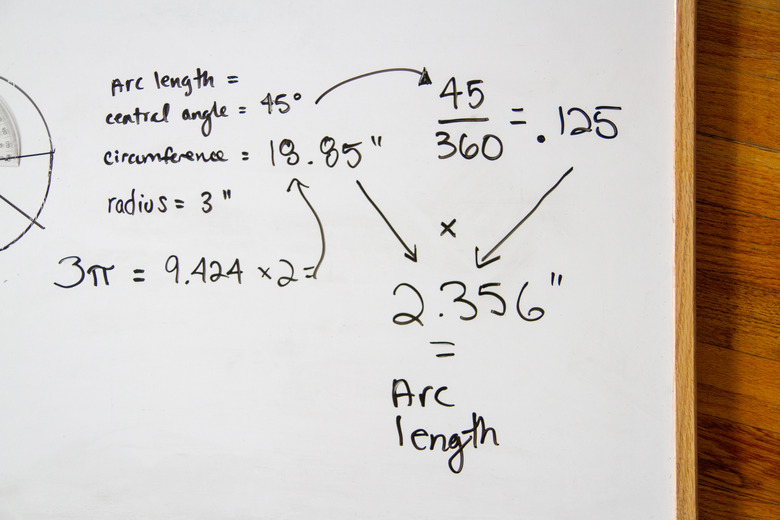 Arc length =
central angle = 45°
circumference = 18.85"
radius = 3"
3π = 9.424 × 2 =
45
360
= .125
×
2.356"
=
Arc
length